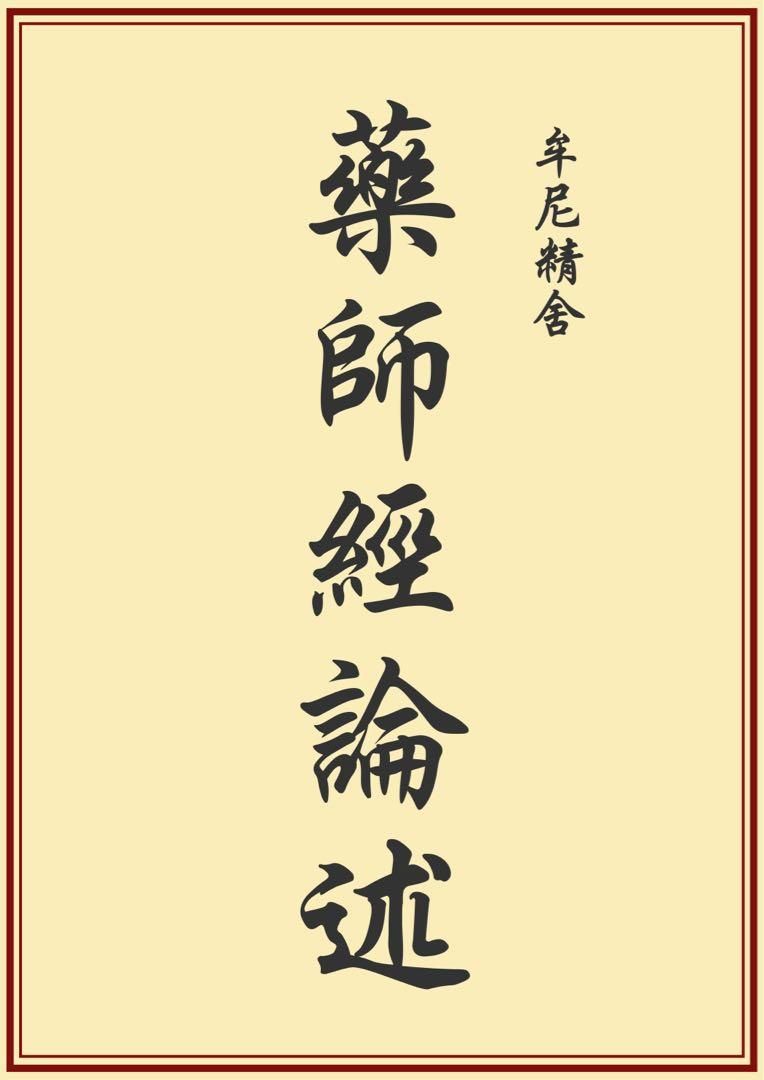 牟尼精舍
藥師經論述